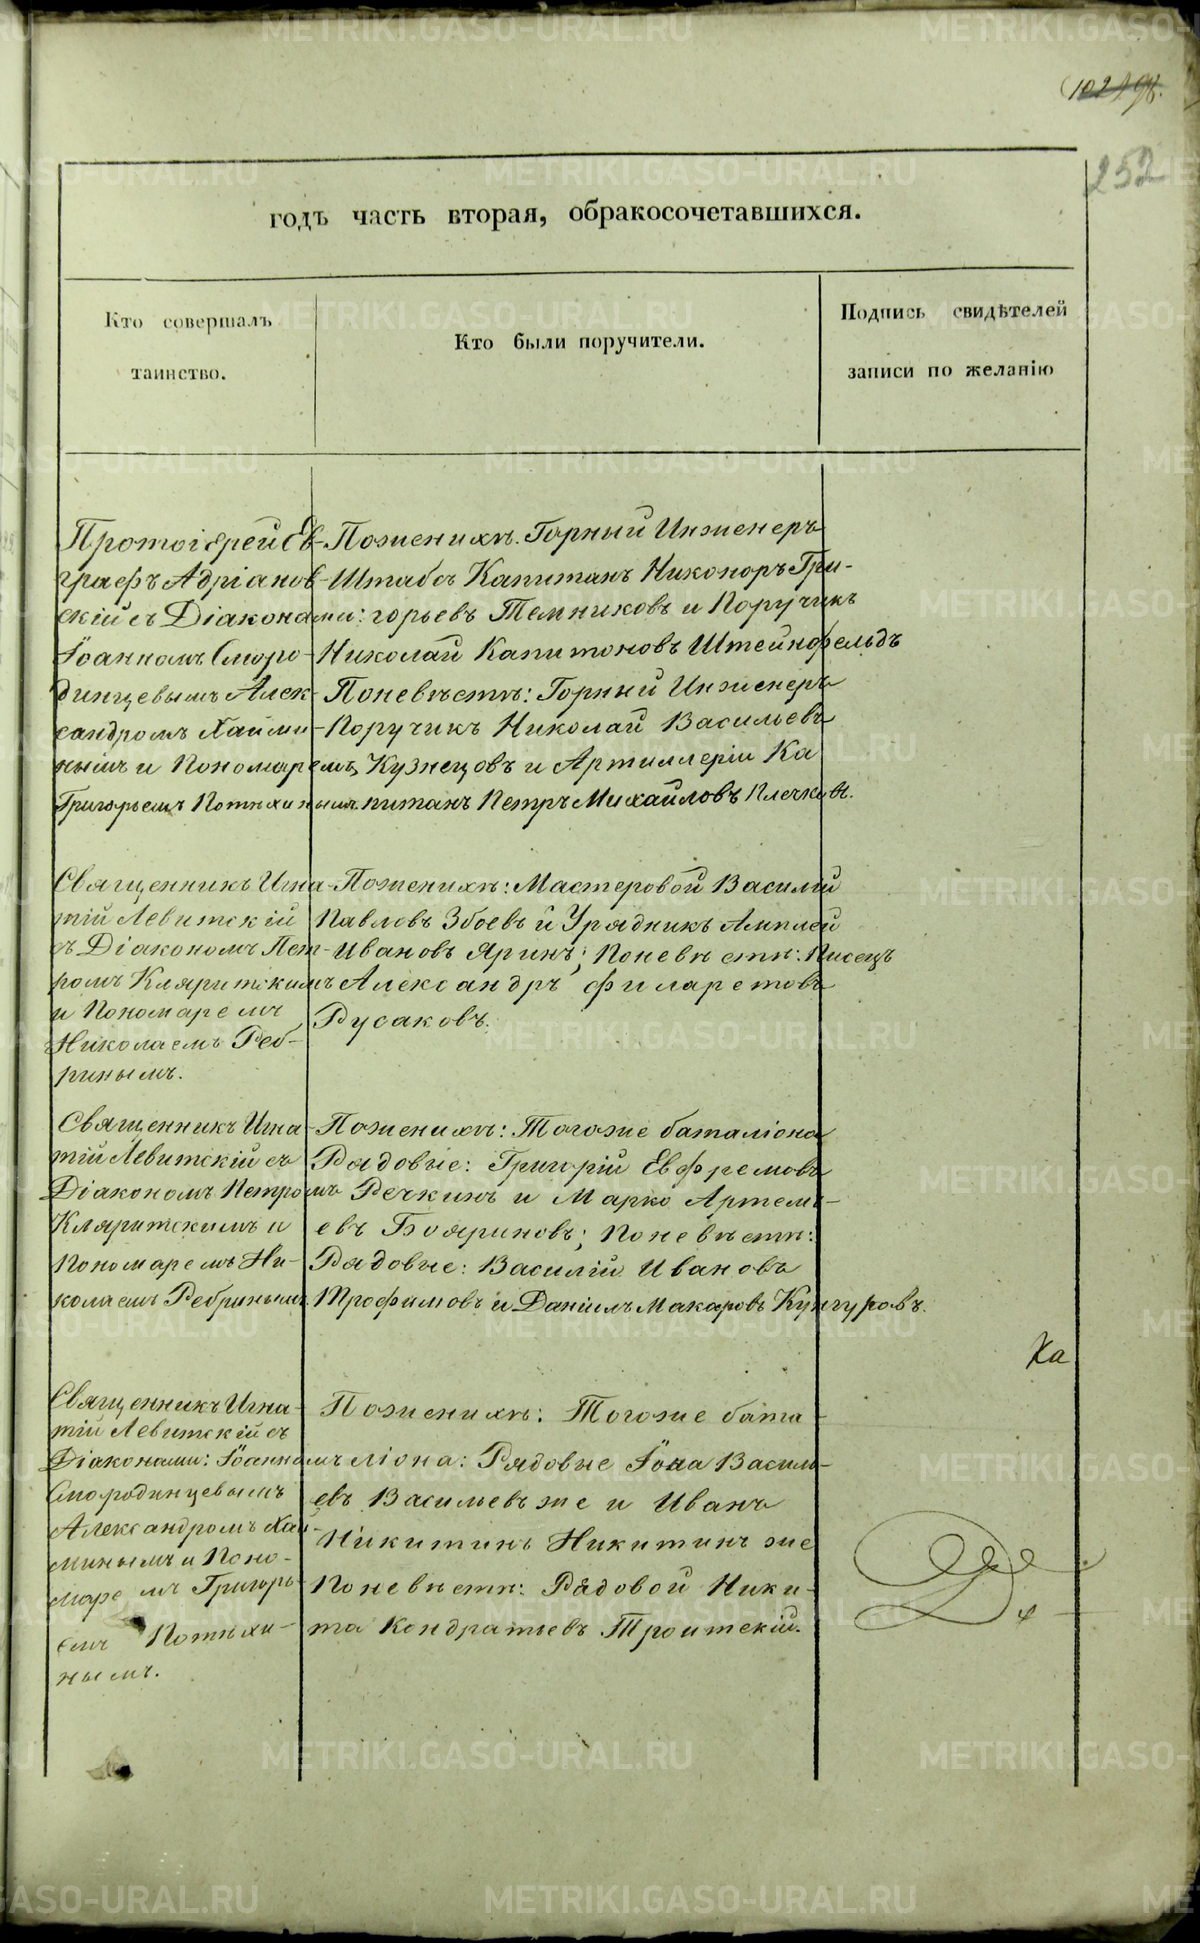 252
годъ часть вторая, обракосочетавшихся.
Кто совершалъ
таинство.
Кто были поручители.
Подпись свидѣтелей
записи по желанію
Протоіерей Ев-
графъ Адріанов-
скій съ Діаконами:
Іоанномъ Сморо-
динцевымъ Алек-
сандромъ Хайми-
нымъ и Пономаремъ
Григорьемъ Потѣхинымъ
Поженихѣ. Горный Инженеръ
Штабсъ Капитанъ Никоноръ Гри-
горьевъ Темниковъ и Поручикъ
Николай Капитоновъ Штейнфельдъ
Поневѣстѣ: Горный Инженеръ
Поручикъ Николай Васильевъ
Кузнецовъ и Артиллеріи Ка
питанъ Петръ Михайловъ Плечковъ.
Священникъ Игна-
тій Левитскій
съ Діакономъ Пет-
ромъ Кляритскимъ
и Пономаремъ
Николаемъ Реб-
ринымъ.
Поженихѣ: Мастеровой Василій
Павловъ Збоевъ и Урядникъ Амплей
Ивановъ Яринъ; Поневѣстѣ: Писецъ
Александръ Филаретовъ
Русаковъ.
Священникъ Игна-
тій Левитскій съ
Діакономъ Петромъ
Кляритскимъ и
Пономаремъ Ни-
колаемъ Ребринымъ
Поженихѣ: Тогоже баталіона
Рядовые: Григорій Евфремовъ
Речкинъ и Марко Артемь-
евъ Бояриновъ; Поневѣстѣ:
Рядовые: Василій Ивановъ
Трофимовъ и Даніилъ Макаровъ Кунгуровъ.
Ка
Священникъ Игна-
тій Левитскій съ
Діаконами: Іоанномъ
Смородинцевымъ
Александромъ Хай-
минымъ и Поно-
маремъ Григорь-
емъ Потѣхи-
нымъ.
Поженихѣ: Тогоже бата-
ліона: Рядовые Іона Василь-
евъ Васильевъ же и Иванъ
Никитинъ Никитинъ же
Поневѣстѣ: Рядовой Ники-
та Кондратьевъ Троитскій.
METRIKI.GASO-URAL.RU